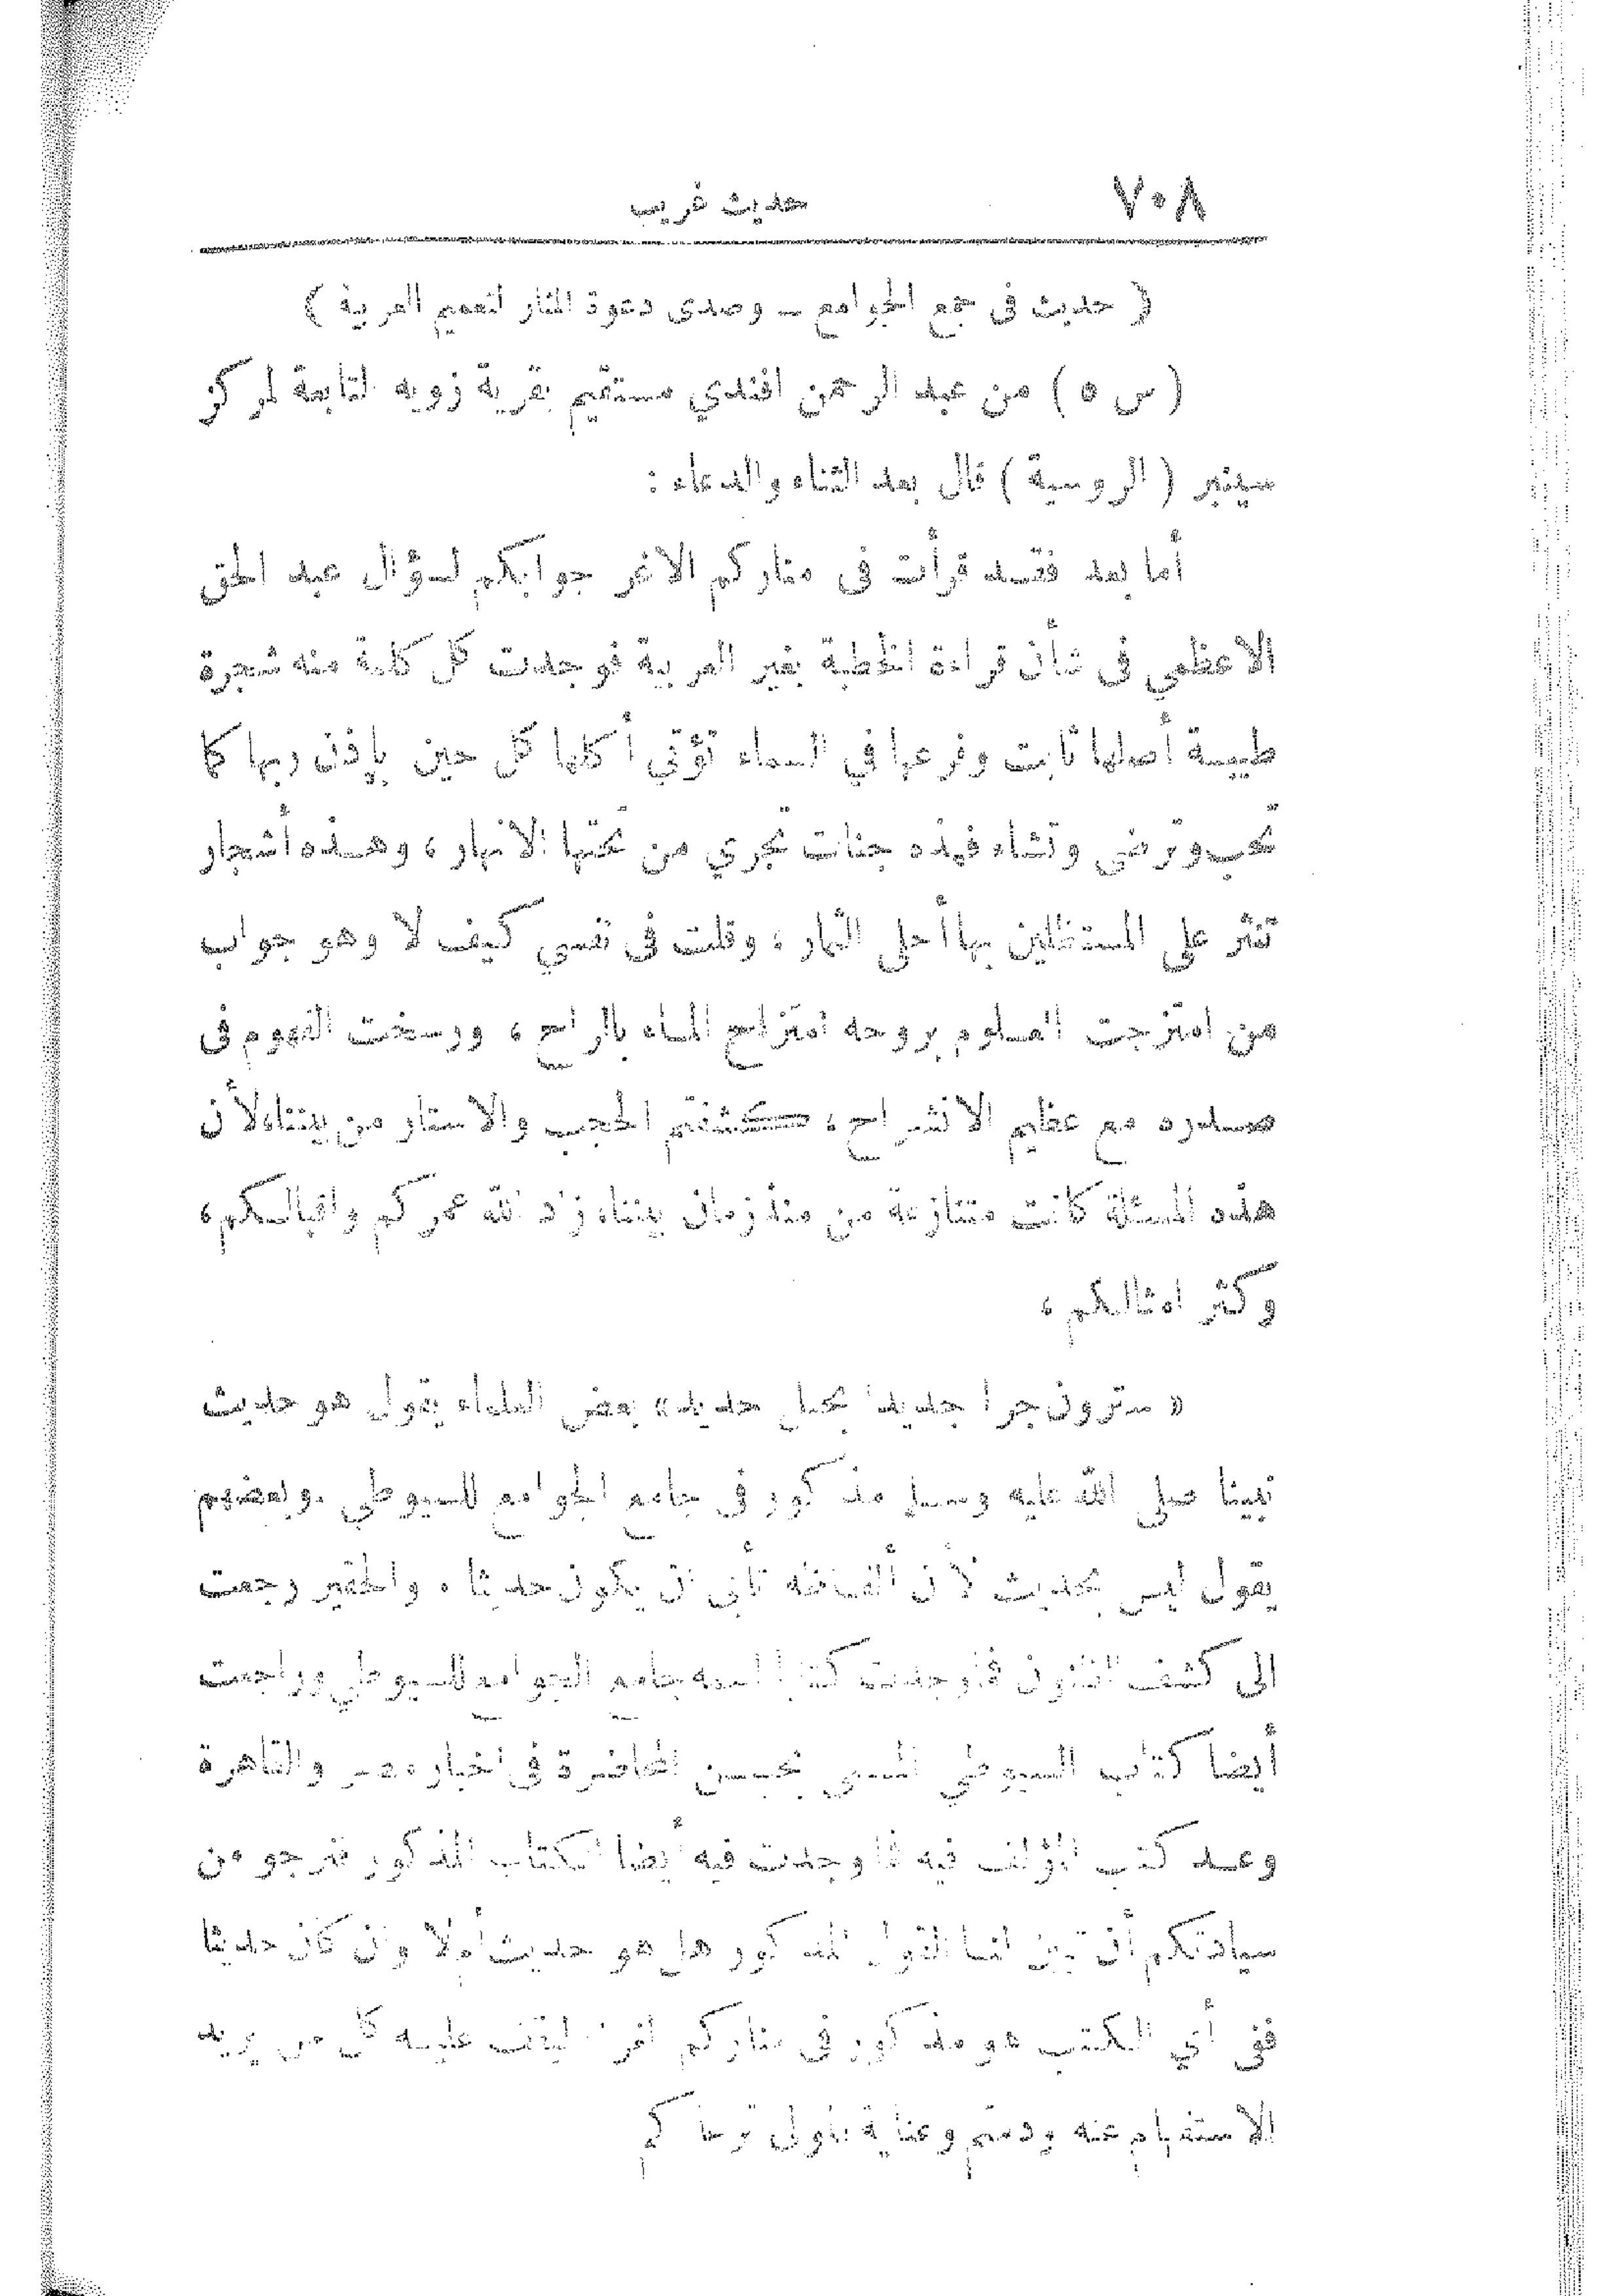 ٧٠٨ حديث غريب
( حديث في جمع الجوامع ــ وصدى دعوة المنار لتعميم العربية )
( س ٥ ) من عبد الرحمن افندي مستقيم بقرية زويه التابعة لمركز
سينبر ( الروسية ) قال بعد الثناء والدعاء :
أما بعد فقد قرأت في مناركم الاغر جوابكم لسؤال عبد الحق
الاعظمي في شأن قراءة الخطبة بغير العربية فوجدت كل كلمة منه شجرة
طيبة أصلها ثابت وفرعها في السماء تؤتي أكلها كل حين بإذن ربها كما
تحب وترضى وتشاء فهذه جنات تجري من تحتها الانهار ، وهذه أشجار
تنثر على المستظلين بها أحلى الثمار ، وقلت في نفسي كيف لا وهو جواب
من امتزجت العلوم بروحه امتزاج الماء بالراح ، ورسخت الفهوم في
صدره مع عظيم الانشراح ، كشفتم الحجب والاستار من بيننا لأن
هذه المسئلة كانت متنازعة من منذ زمان بيننا، زاد الله عمركم واقبالكم ،
وكثر امثالكم ،
« سترون جرا جديدا بحبل حديد » بعض العلماء يقول هو حديث
نبينا صلى الله عليه وسلم مذكور في جامع الجوامع للسيوطي . وبعضهم
يقول ليس بحديث لأن ألفاظه تأبى ان يكون حديثا ، والحقير رجعت
الى كشف الظنون فما وجدت كتابا اسمه جامع الجوامع للسيوطي وراجعت
أيضا كتاب السيوطي المسمى بحسن المحاضرة في اخبار مصر والقاهرة
وعد كتب المؤلف فيه فما وجدت فيه أيضا الكتاب المذكور فنرجو من
سيادتكم أن تبين لنا القول المذكور هل هو حديث أم لا وان كان حديثا
ففي أي الكتب هو مذكور في مناركم الاغر ليقف عليه كل من يريد
الاستفهام عنه ودمتم وعناية المولى ترعاكم